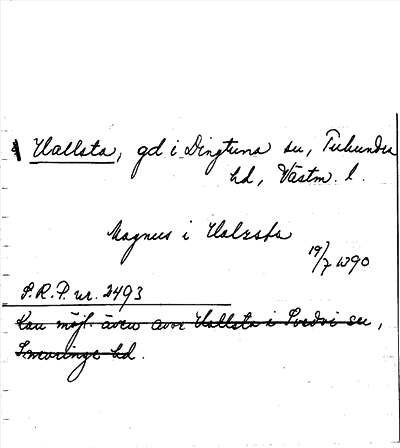 Vallsta, gd i Dingtuna sn, Tuhundra
hd, Västm. l.
Magnus i Valzsta
19/7 1490
S.R.P. nr. 2493
Kan möjl. även avse Vallsta i Svedvi sn,
Snevringe hd.